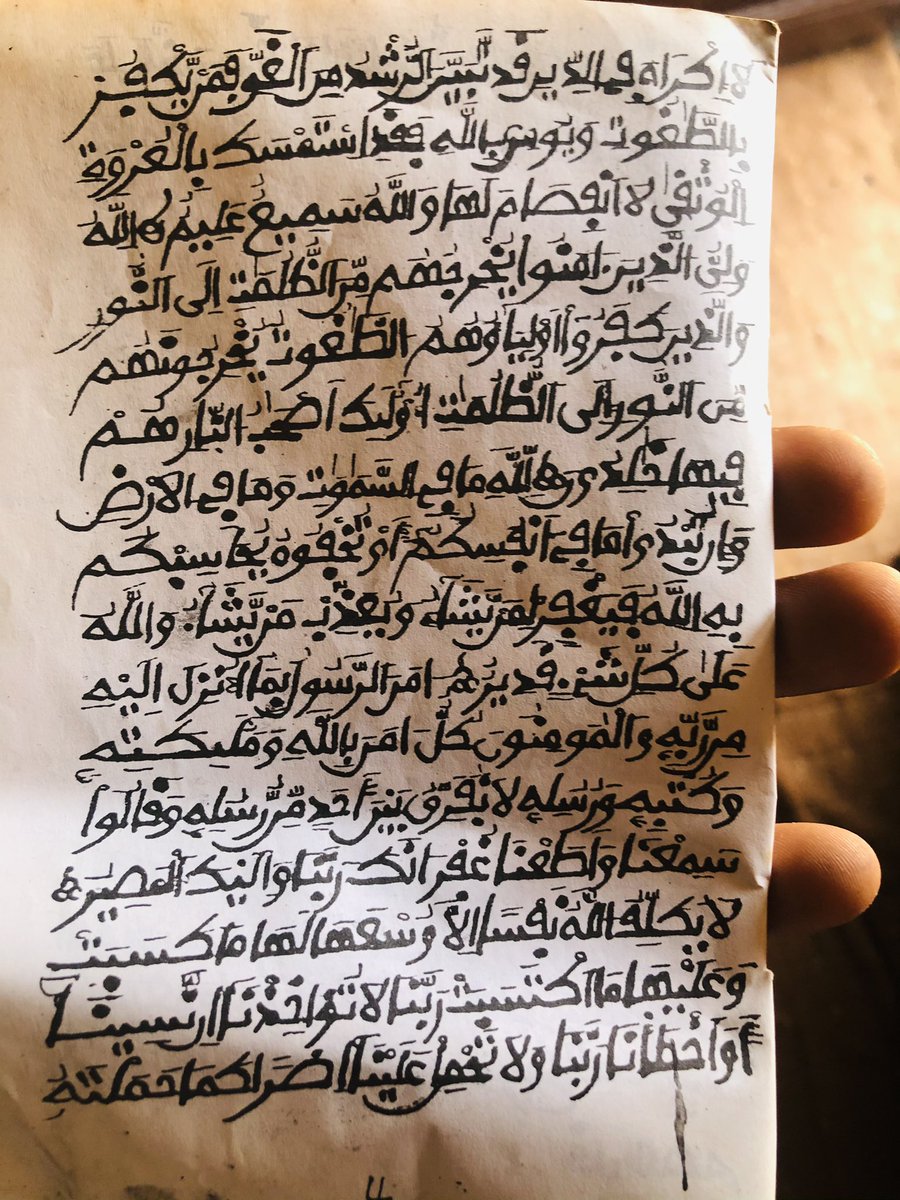 لَا إِكْرَاهَ فِي الدِّينِ قَد تَّبَيَّنَ الرُّشْدُ مِنَ الْغَيِّ فَمَنْ يَّكْفُرْ
بِالطَّٰغُوتِ وَيُومِنۢ بِاللَّهِ فَقَدِ اسْتَمْسَكَ بِالْعُرْوَةِ
الْوُثْقَىٰ لَا انفِصَامَ لَهَا وَاللَّهُ سَمِيعٌ عَلِيمٌ اللَّهُ
وَلِيُّ الَّذِينَ ءَامَنُوا يُخْرِجُهُم مِّنَ الظُّلُمَٰتِ إِلَى النُّورِ
وَالَّذِينَ كَفَرُوا أَوْلِيَاؤُهُمُ الطَّٰغُوتُ يُخْرِجُونَهُم
مِّنَ النُّورِ إِلَى الظُّلُمَٰتِ أُوْلَٰئِكَ أَصْحَٰبُ النَّارِ هُمْ
فِيهَا خَٰلِدُونَ لِلَّهِ مَا فِي السَّمَٰوَٰتِ وَمَا فِي الْأَرْضِ
وَإِن تُبْدُوا مَا فِي أَنفُسِكُمْ أَوْ تُخْفُوهُ يُحَاسِبْكُم
بِهِ اللَّهُ فَيَغْفِرْ لِمَنْ يَّشَاءُ وَيُعَذِّبْ مَنْ يَّشَاءُ وَاللَّهُ
عَلَىٰ كُلِّ شَيْءٍ قَدِيرٌ ءَامَنَ الرَّسُولُ بِمَا أُنزِلَ إِلَيْهِ
مِن رَّبِّهِ وَالْمُومِنُونَ كُلٌّ ءَامَنَ بِاللَّهِ وَمَلَٰئِكَتِهِ
وَكُتُبِهِ وَرُسُلِهِ لَا نُفَرِّقُ بَيْنَ أَحَدٍ مِّن رُّسُلِهِ وَقَالُوا
سَمِعْنَا وَأَطَعْنَا غُفْرَانَكَ رَبَّنَا وَإِلَيْكَ الْمَصِيرُ
لَا يُكَلِّفُ اللَّهُ نَفْسًا إِلَّا وُسْعَهَا لَهَا مَا كَسَبَتْ
وَعَلَيْهَا مَا اكْتَسَبَتْ رَبَّنَا لَا تُوَاخِذْنَا إِن نَّسِينَا
أَوْ أَخْطَأْنَا رَبَّنَا وَلَا تَحْمِلْ عَلَيْنَا إِصْرًا كَمَا حَمَلْتَهُ